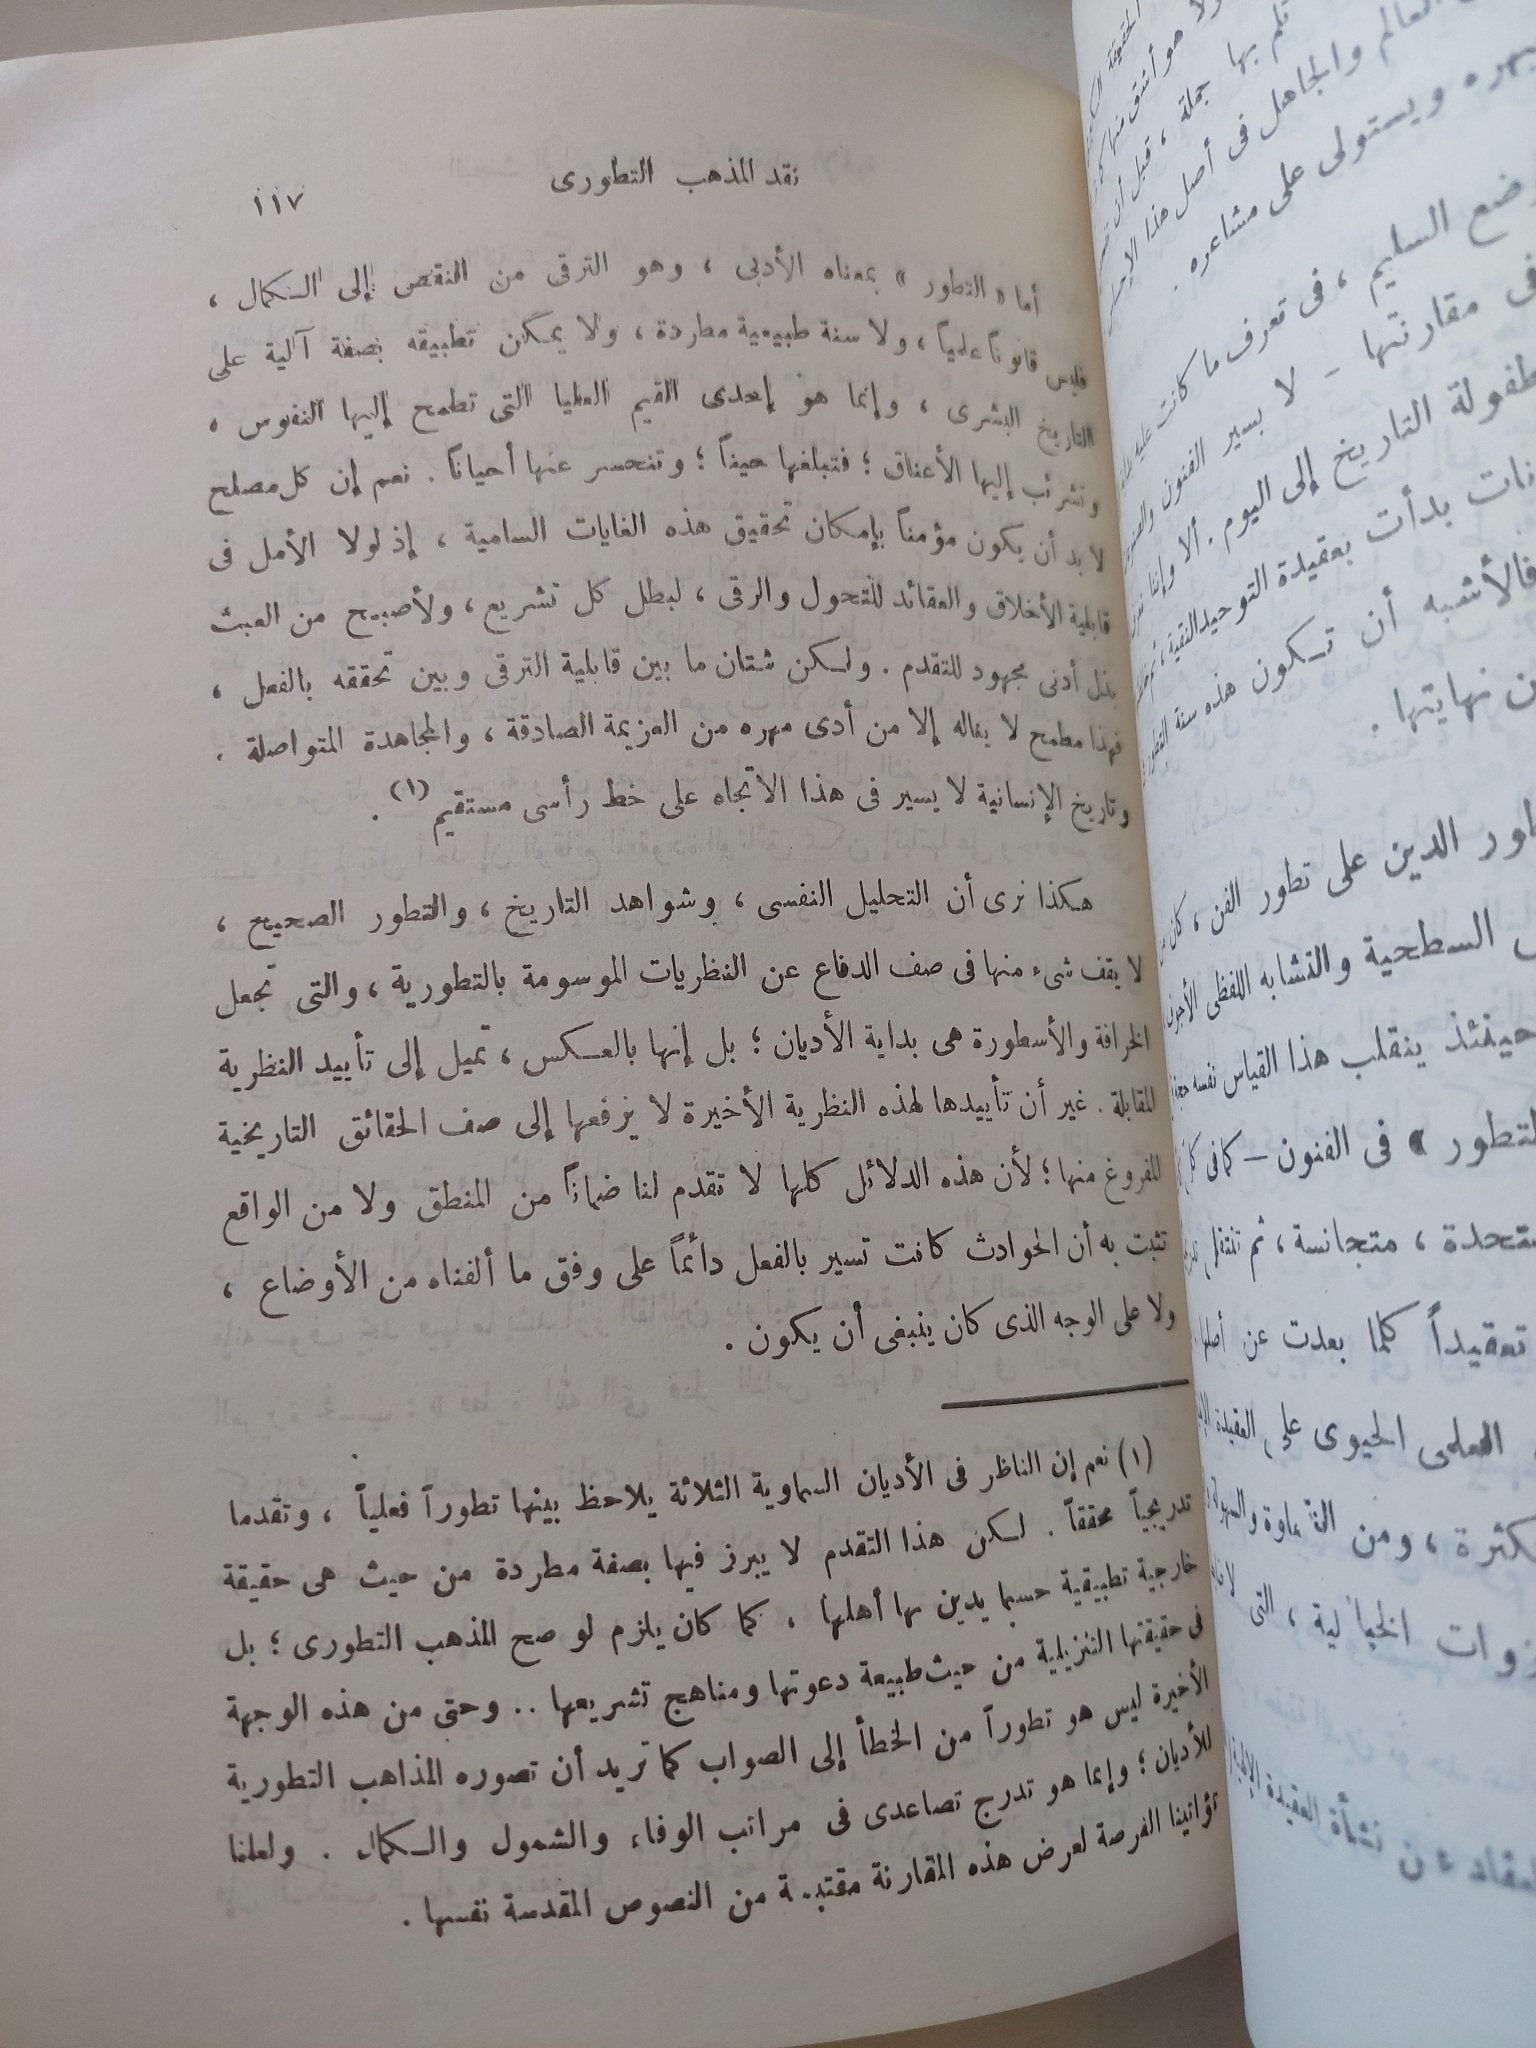 نقد المذهب التطورى
١١٧
أما « التطور » بمعناه الأدبى ، وهو الترقى من النقص إلى الكمال ،
فليس قانوناً علمياً ، ولا سنة طبيعية مطردة ، ولا يمكن تطبيقه بصفة آلية على
التاريخ البشرى ، وإنما هو إحدى القيم العليا التى تطمح إليها النفوس ،
وتشرئب إليها الأعناق ؛ فتبلغها حيناً ؛ وتنحسر عنها أحياناً . نعم إن كل مصلح
لابد أن يكون مؤمناً بإمكان تحقيق هذه الغايات السامية ، إذ لولا الأمل فى
قابلية الأخلاق والعقائد للتحول والرقى ، لبطل كل تشريع ، ولأصبح من العبث
بذل أدنى مجهود للتقدم . ولكن شتان ما بين قابلية الترقى وبين تحققه بالفعل ،
فهذا مطمح لا يناله إلا من أدى مهره من العزيمة الصادقة ، والمجاهدة المتواصلة .
وتاريخ الإنسانية لا يسير فى هذا الاتجاه على خط رأسى مستقيم (١) .
هكذا نرى أن التحليل النفسى ، وشواهد التاريخ ، والتطور الصحيح ،
لا يقف شىء منها فى صف الدفاع عن النظريات الموسومة بالتطورية ، والتى تجعل
الخرافة والأسطورة هى بداية الأديان ؛ بل إنها بالعكس ، تميل إلى تأييد النظرية
المقابلة . غير أن تأييدها لهذه النظرية الأخيرة لا يرفعها إلى صف الحقائق التاريخية
المفروغ منها ؛ لأن هذه الدلائل كلها لا تقدم لنا ضماناً من المنطق ولا من الواقع
تثبت به أن الحوادث كانت تسير بالفعل دائماً على وفق ما ألفناه من الأوضاع ،
ولا على الوجه الذى كان ينبغى أن يكون .
(١) نعم إن الناظر فى الأديان السماوية الثلاثة يلاحظ بينها تطوراً فعلياً ، وتقدما
تدريجياً محققاً . لكن هذا التقدم لا يبرز فيها بصفة مطردة من حيث هى حقيقة
خارجية تطبيقية حسبما يدين بها أهلها ، كما كان يلزم لو صح المذهب التطورى ؛ بل
فى حقيقتها التنزيلية من حيث طبيعة دعوتها ومناهج تشريعها .. وحتى من هذه الوجهة
الأخيرة ليس هو تطوراً من الخطأ إلى الصواب كما تريد أن تصوره المذاهب التطورية
للأديان ؛ وإنما هو تدرج تصاعدى فى مراتب الوفاء والشمول والكمال . ولعلنا
تؤاتينا الفرصة لعرض هذه المقارنة مقتبسة من النصوص المقدسة نفسها .
العالم والجاهل فى أصل هذا
ويستولى على مشاعره .
السليم ، فى تعرف ما كانت عليه
فى مقارنتها - لا بسير الفنون
طفولة التاريخ إلى اليوم . ألا وإننا
بدأت بعقيدة التوحيد النقية ،
فالأشبه أن تكون هذه سنة
نهايتها .
الدين على تطور الفن ، كان
السطحية والتشابه اللفظى
حينئذ ينقلب هذا القياس نفسه
التطور » فى الفنون - كما فى
متحدة ، متجانسة ، ثم
تعقيداً كلما بعدت عن أصلها
الحيوى على العقيدة
، ومن
الخيالية ، التى
نشأة العقيدة